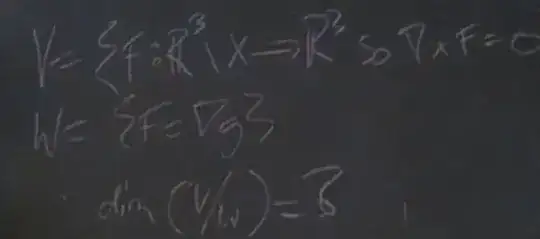 V = {F: ℝ³\X → ℝ³ so ∇×F=0
W = {F = ∇g}
dim(V/W) = 8